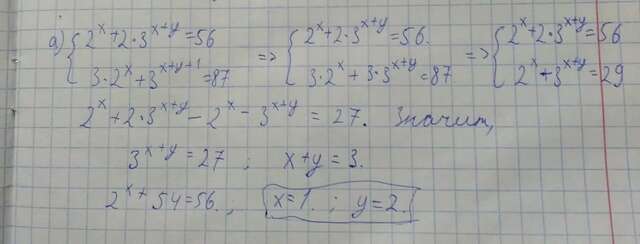 а) {2^x+2·3^(x+y)=56 => {2^x+2·3^(x+y)=56. => {2^x+2·3^(x+y)=56
3·2^x+3^(x+y+1)=87 3·2^x+3·3^(x+y)=87 2^x+3^(x+y)=29
2^x+2·3^(x+y)-2^x-3^(x+y)=27. Значит,
3^(x+y)=27; x+y=3.
2^x+54=56.; x=1.; y=2.